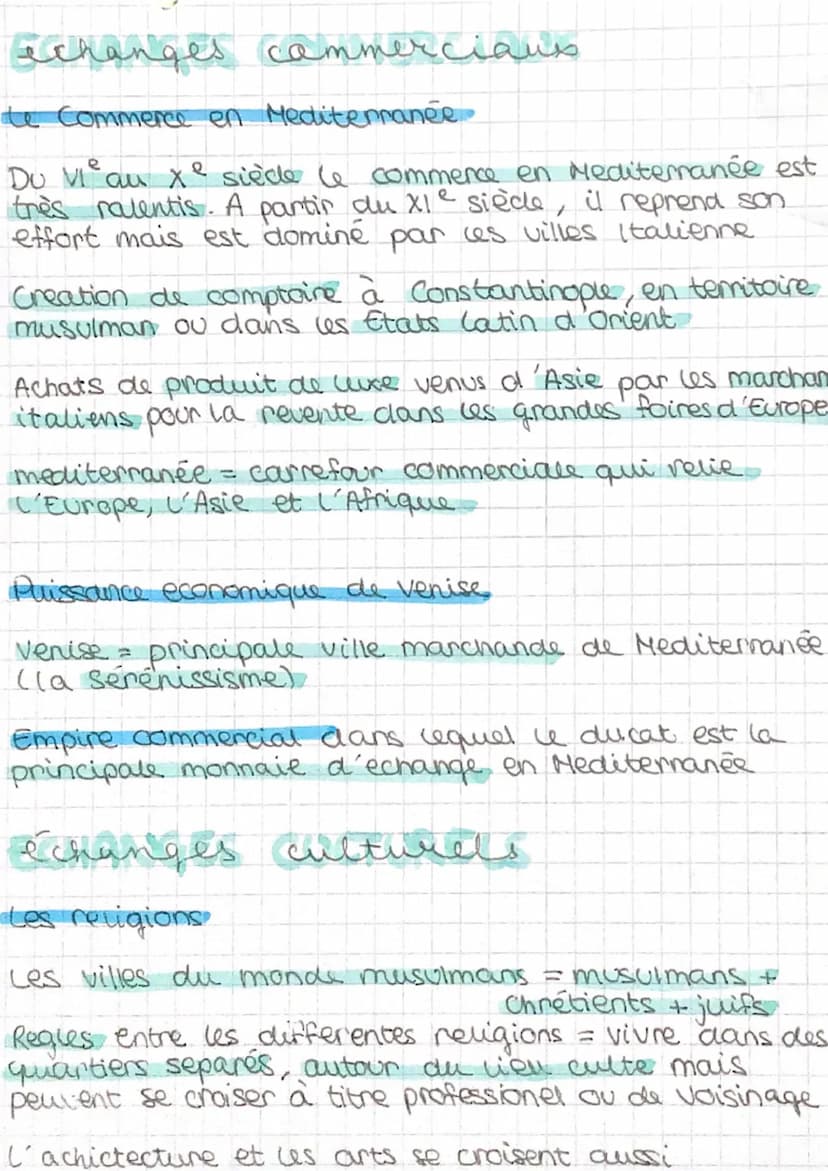 échanges commerciaux
Le Commerce en Mediterranée
Du VIe au Xe siècle le commerce en Mediterranée est
très ralentis. A partir du XIe siècle, il reprend son
effort mais est dominé par les villes Italienne
Creation de comptoire à Constantinople, en territoire
musulman ou dans les États Latin d'Orient
Achats de produit de luxe venus d'Asie par les marchan
italiens pour la revente dans les grandes foires d'Europe
mediterranée = carrefour commerciale qui relie
l'Europe, l'Asie et l'Afrique
Puissance economique de Venise
Venise = principale ville marchande de Mediterranée
(la Sérénissisme)
Empire commercial dans lequel le ducat est la
principale monnaie d'échange en Mediterranée
échanges culturels
Les religions
Les villes du monde musulmans = musulmans +
Chrétients + juifs
Regles entre les differentes religions = vivre dans des
quartiers separés, autour du lieu culte mais
peuvent se croiser à titre professionel ou de voisinage
L'achictecture et les arts se croisent aussi